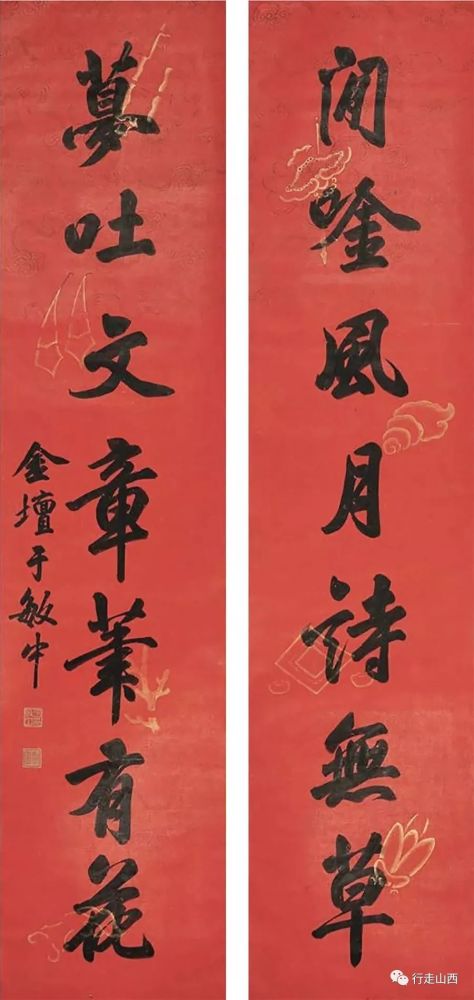 閒唫風月詩無草
夢吐文章筆有花
金壇于敏中
行走山西